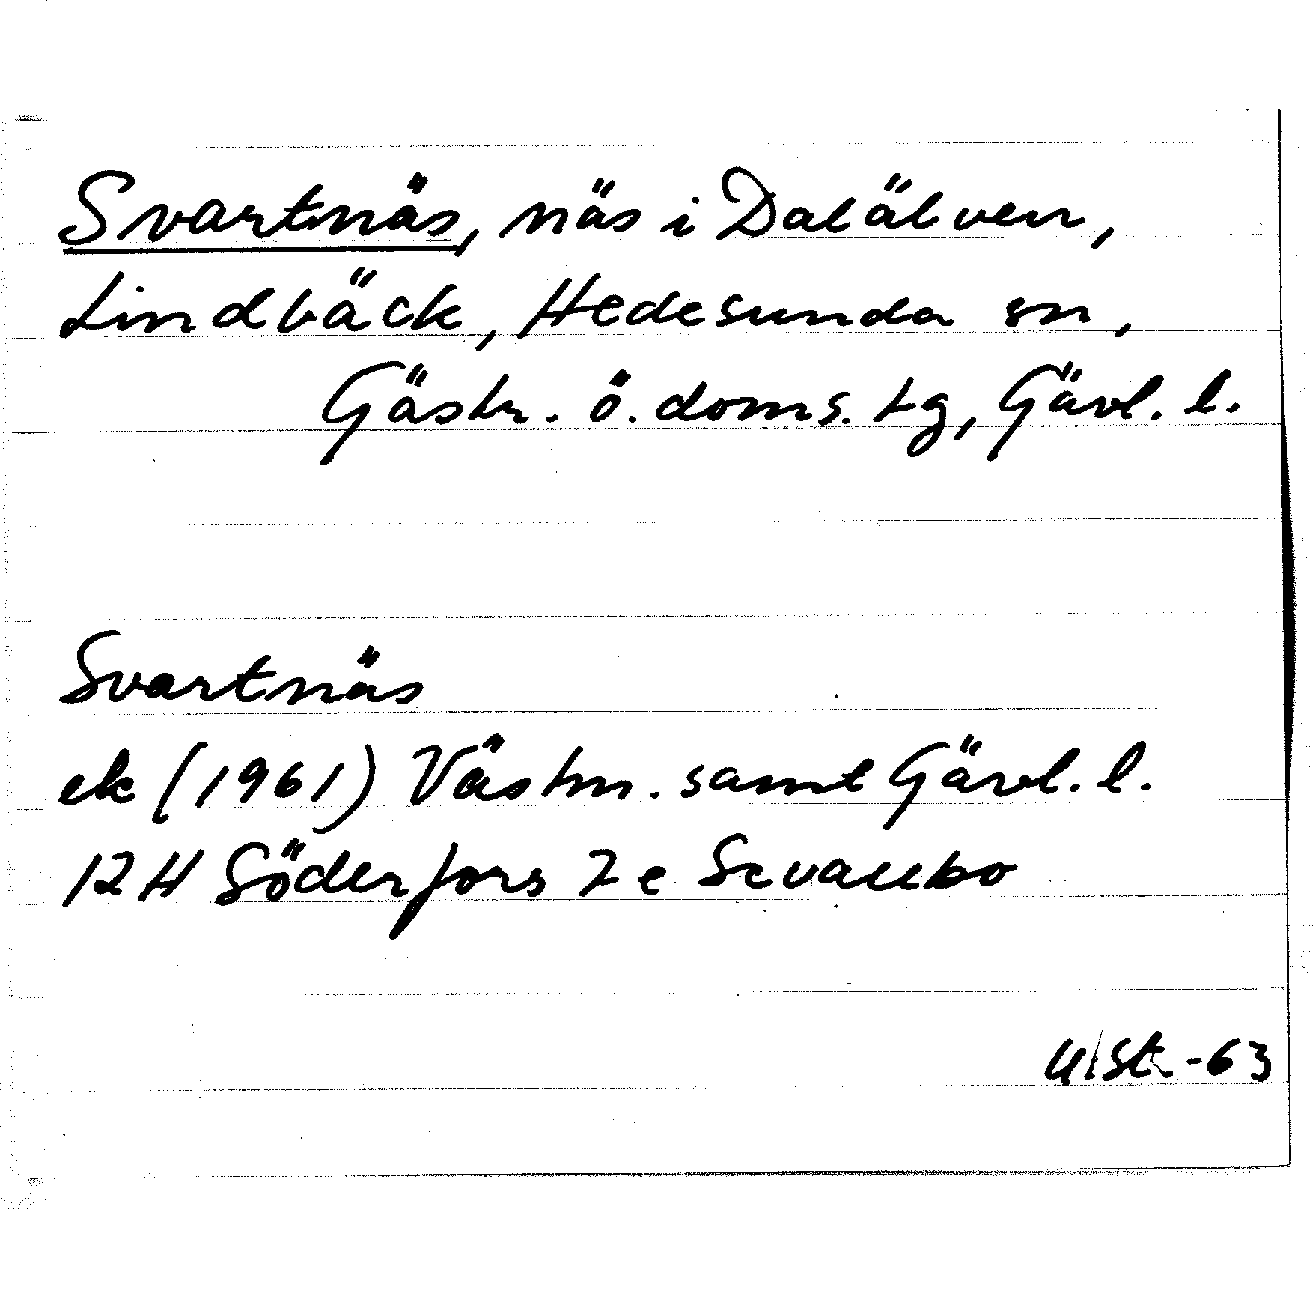 Svartnäs, näs i Dalälven,
Lindbäck, Hedesunda sn,
Gästr. ö. doms. tg, Gävl. l.
Svartnäs
ek (1961) Västm. samt Gävl. l.
12 H Söderfors 7 e
-63